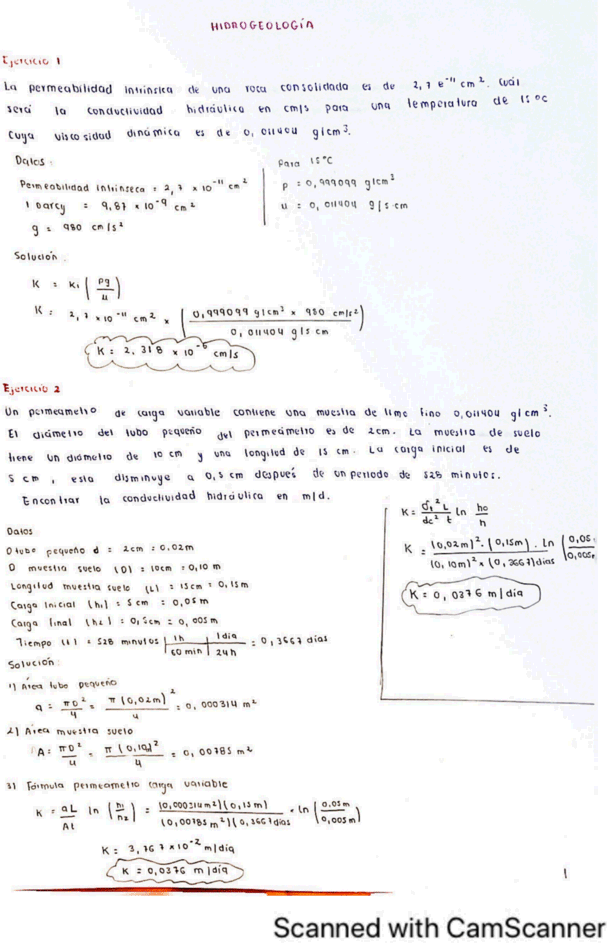 HIDROGEOLOGÍA
Ejercicio 1
La permeabilidad intrínsica de una roca consolidada es de 2,7 e⁻¹¹ cm². Cuál
será la conductividad hidráulica en cm/s para una temperatura de 15 °C
cuya viscosidad dinámica es de 0,011404 g/cm³.
Datos:
Permeabilidad intrínseca = 2,7 x 10⁻¹¹ cm²
1 Darcy = 9,87 x 10⁻⁹ cm²
g = 980 cm/s²
Para 15°C
ρ = 0,999099 g/cm³
u = 0,011404 g/s·cm
Solución:
K = Ki (ρg / u)
K = 2,7 x 10⁻¹¹ cm² x (0,999099 g/cm³ x 980 cm/s² / 0,011404 g/s cm)
K = 2.318 x 10⁻⁶ cm/s
Ejercicio 2
Un permeametro de carga variable contiene una muestra de limo fino 0,011404 g/cm³.
El diámetro del tubo pequeño del permeámetro es de 2cm. La muestra de suelo
tiene un diámetro de 10 cm y una longitud de 15 cm. La carga inicial es de
5 cm, esta disminuye a 0,5 cm después de un periodo de 528 minutos.
Encontrar la conductividad hidráulica en m/d.
Datos
D tubo pequeño d = 2cm = 0.02m
D muestra suelo (D) = 10cm = 0,10 m
Longitud muestra suelo (L) = 15cm = 0,15m
Carga Inicial (h₁) = 5 cm = 0,05 m
Carga final (h₂) = 0,5cm = 0,005 m
Tiempo (t) = 528 minutos | 1h / 60 min | 1 día / 24h = 0,3667 días
Solución:
1) Área tubo pequeño
a = πD² / 4 = π (0,02m)² / 4 = 0,000314 m²
2) Área muestra suelo
A = πD² / 4 = π (0,10)² / 4 = 0,00785 m²
3) Fórmula permeametro carga variable
K = aL / At ln (h₁ / h₂) = (0,000314m²)(0,15m) / (0,00785 m²)(0,3667días · ln (0,05m / 0,005m)
K = 3,767 x10⁻² m/día
K = 0,0376 m/día
K = dt² L / dc² t ln ho / h
K = (0,02m)² · (0,15m) / (0,10m)² x (0,3667)días · ln (0,05 / 0,005
K = 0,0376 m/día
1
Scanned with CamScanner